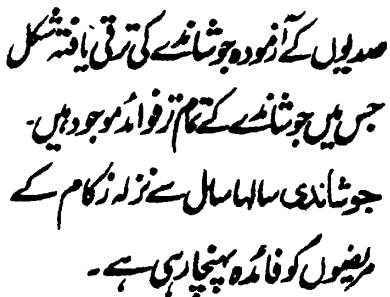 صدیوں کے آزمودہ جوشاندے کی ترقی یافتہ شکل
جس میں جوشاندے کے تمام تر فوائد موجود ہیں۔
جوشاندی سالہا سال سے نزلہ زکام کے
مریضوں کو فائدہ پہنچا رہی ہے۔